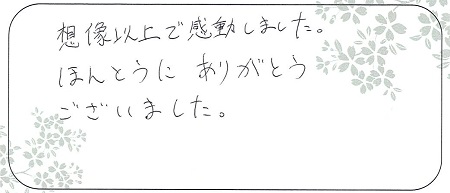 想像以上で感動しました。
ほんとうに ありがとう
ございました。